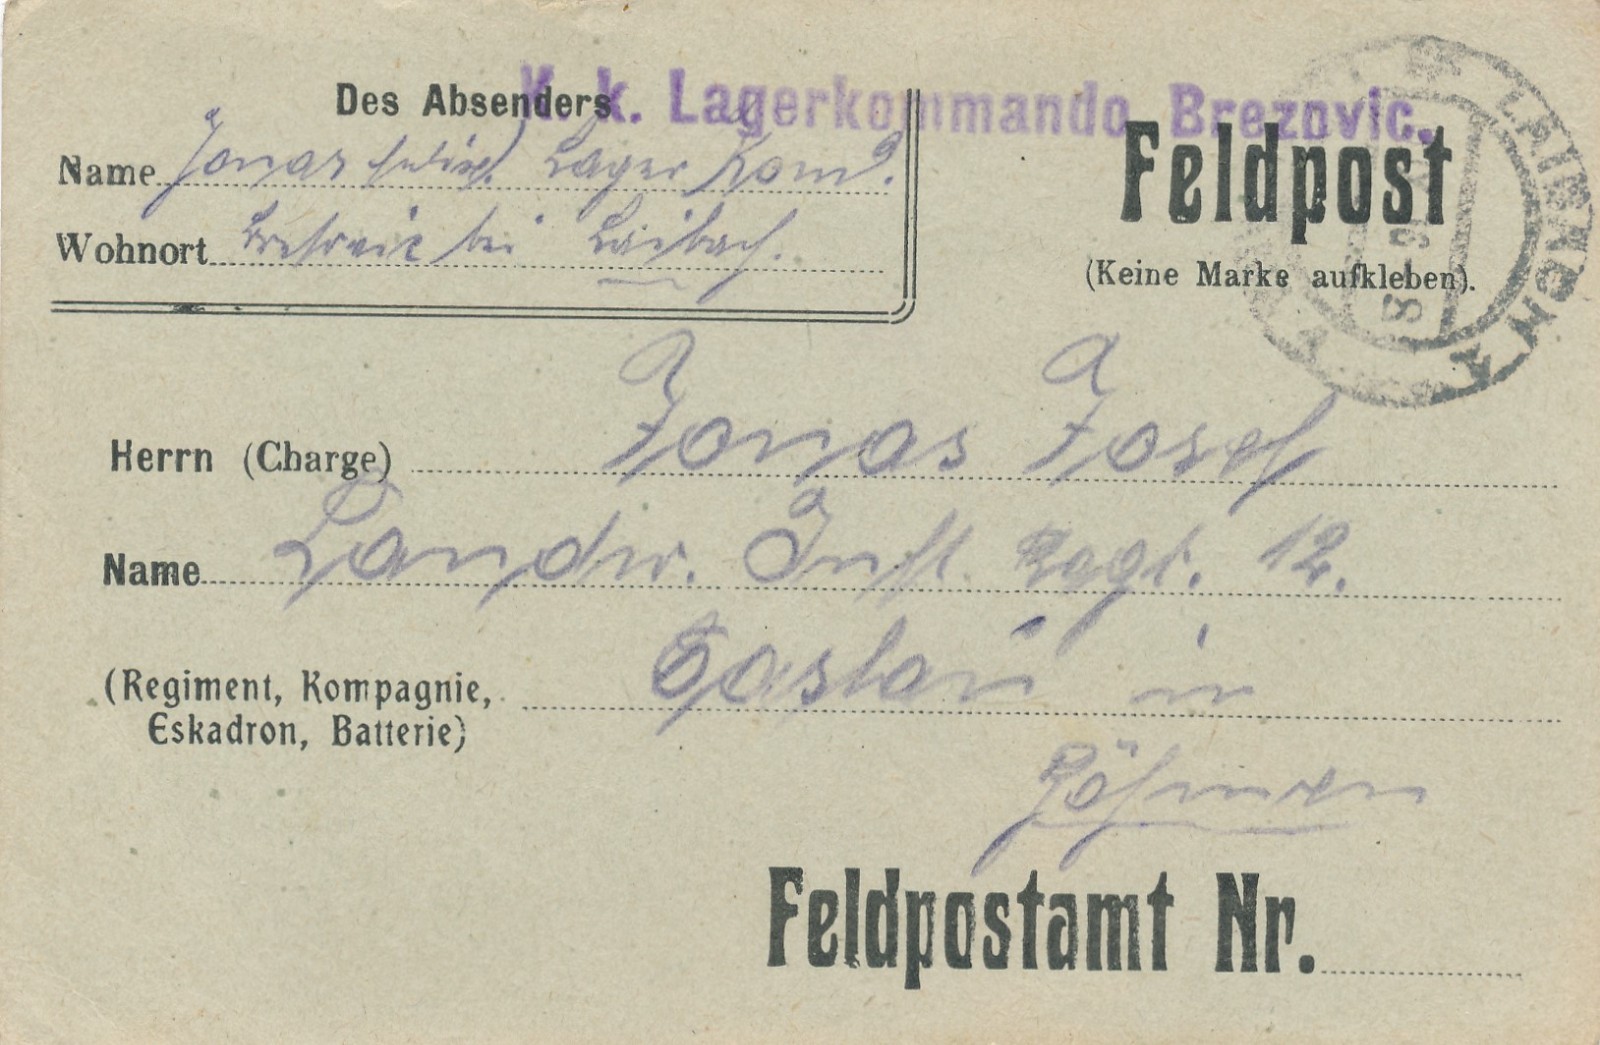 K. k. Lagerkommando Brezovic.
Des Absenders
Name Jonas Lager Kom̃d.
Wohnort Bresovic bei Laibach.
Feldpost
(Keine Marke aufkleben).
LAIBACH 1
Herrn (Charge) Jonas Josef
Name Landw. Inft. Regt. 12.
(Regiment, Kompagnie, Časlau in
Eskadron, Batterie)
Böhmen
Feldpostamt Nr.